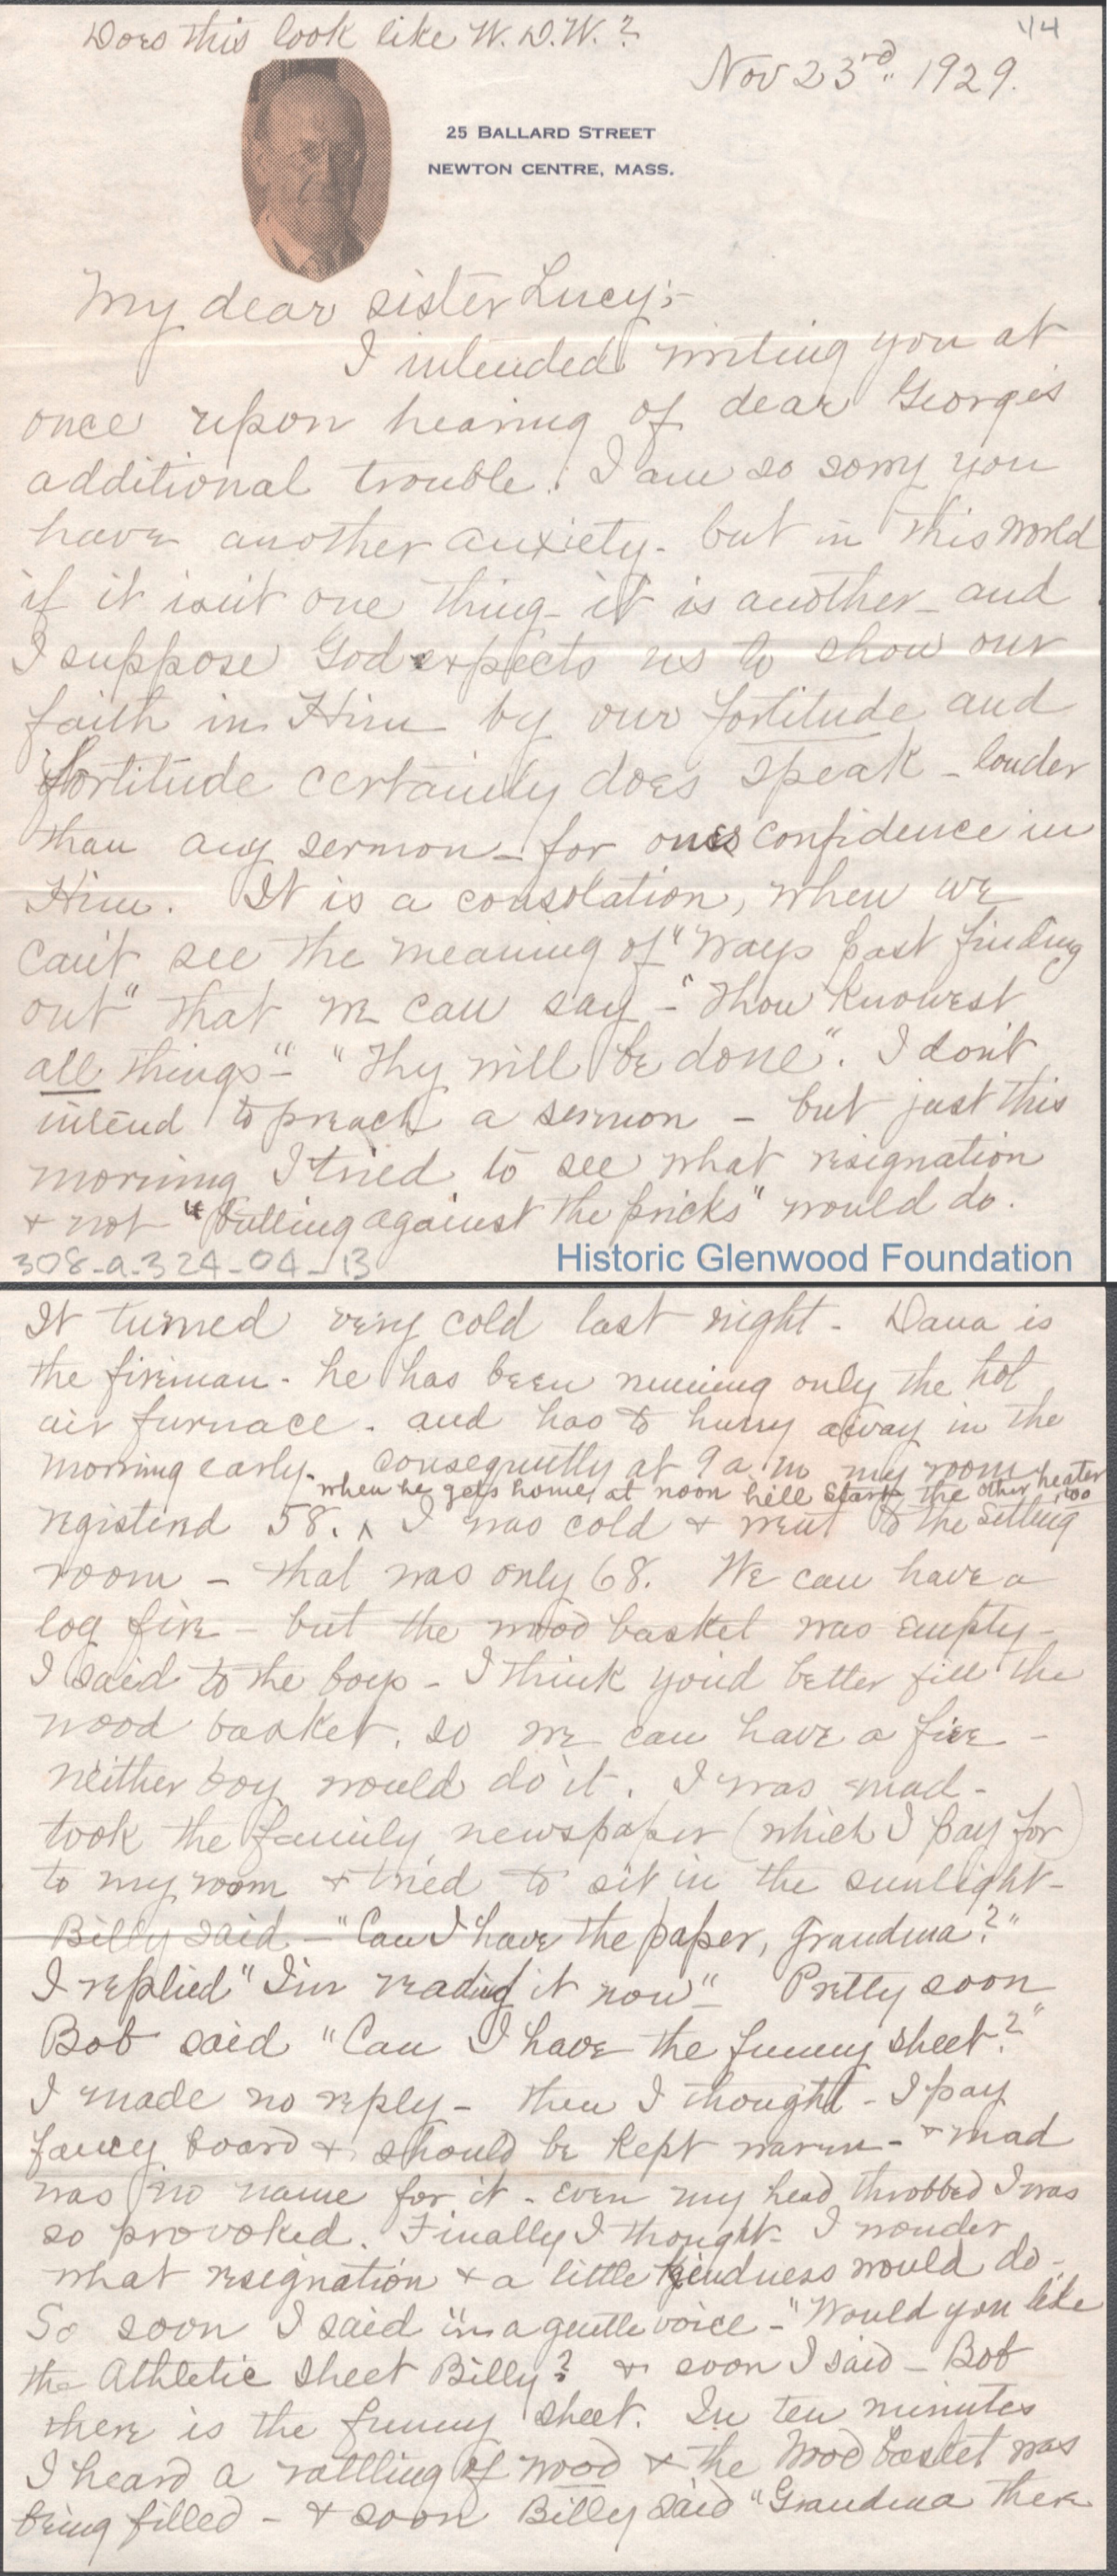 Does this look like W. D. W.?
1/4
Nov 23rd. 1929.
25 BALLARD STREET
NEWTON CENTRE, MASS.
My dear sister Lucy:-
I intended writing you at
once upon hearing of dear George's
additional trouble. I am so sorry you
have another anxiety - but in this world
if it isn't one thing - it is another - and
I suppose God expects us to show our
faith in Him by our fortitude and
fortitude certainly does speak - louder
than any sermon - for ones confidence in
Him. It is a consolation, when we
can't see the meaning of "ways past finding
out" that we can say - "Thou knowest
all things" - "Thy will be done". I don't
intend to preach a sermon - but just this
morning I tried to see what resignation
& not "pulling against the pricks" would do.
308-a-324-04-13
Historic Glenwood Foundation
It turned very cold last night - Dana is
the fireman - he has been running only the hot
air furnace - and has to hurry away in the
morning early - consequently at 9 a m my room
when he gets home, at noon he'll start the other heater too
registerd 58. ^ I was cold & went to the sitting
room - that was only 68. We can have a
log fire - but the wood basket was empty -
I said to the boys - I think you'd better fill the
wood basket, so we can have a fire -
neither boy would do it. I was mad -
took the family newspaper (which I pay for)
to my room & tried to sit in the sunlight -
Billy said - "Can I have the paper, Grandma?"
I replied "I'm reading it now" - Pretty soon
Bob said "Can I have the funny sheet?"
I made no reply - then I thought - I pay
fancy board & should be kept warm - & mad
was no name for it - even my head throbbed I was
so provoked. Finally I thought - I wonder
what resignation & a little kindness would do -
So soon I said in a gentle voice - "Would you like
the Athletic sheet Billy? & soon I said - Bob
there is the funny sheet. In ten minutes
I heard a rattling of wood & the wood basket was
being filled - & soon Billy said "Grandma there